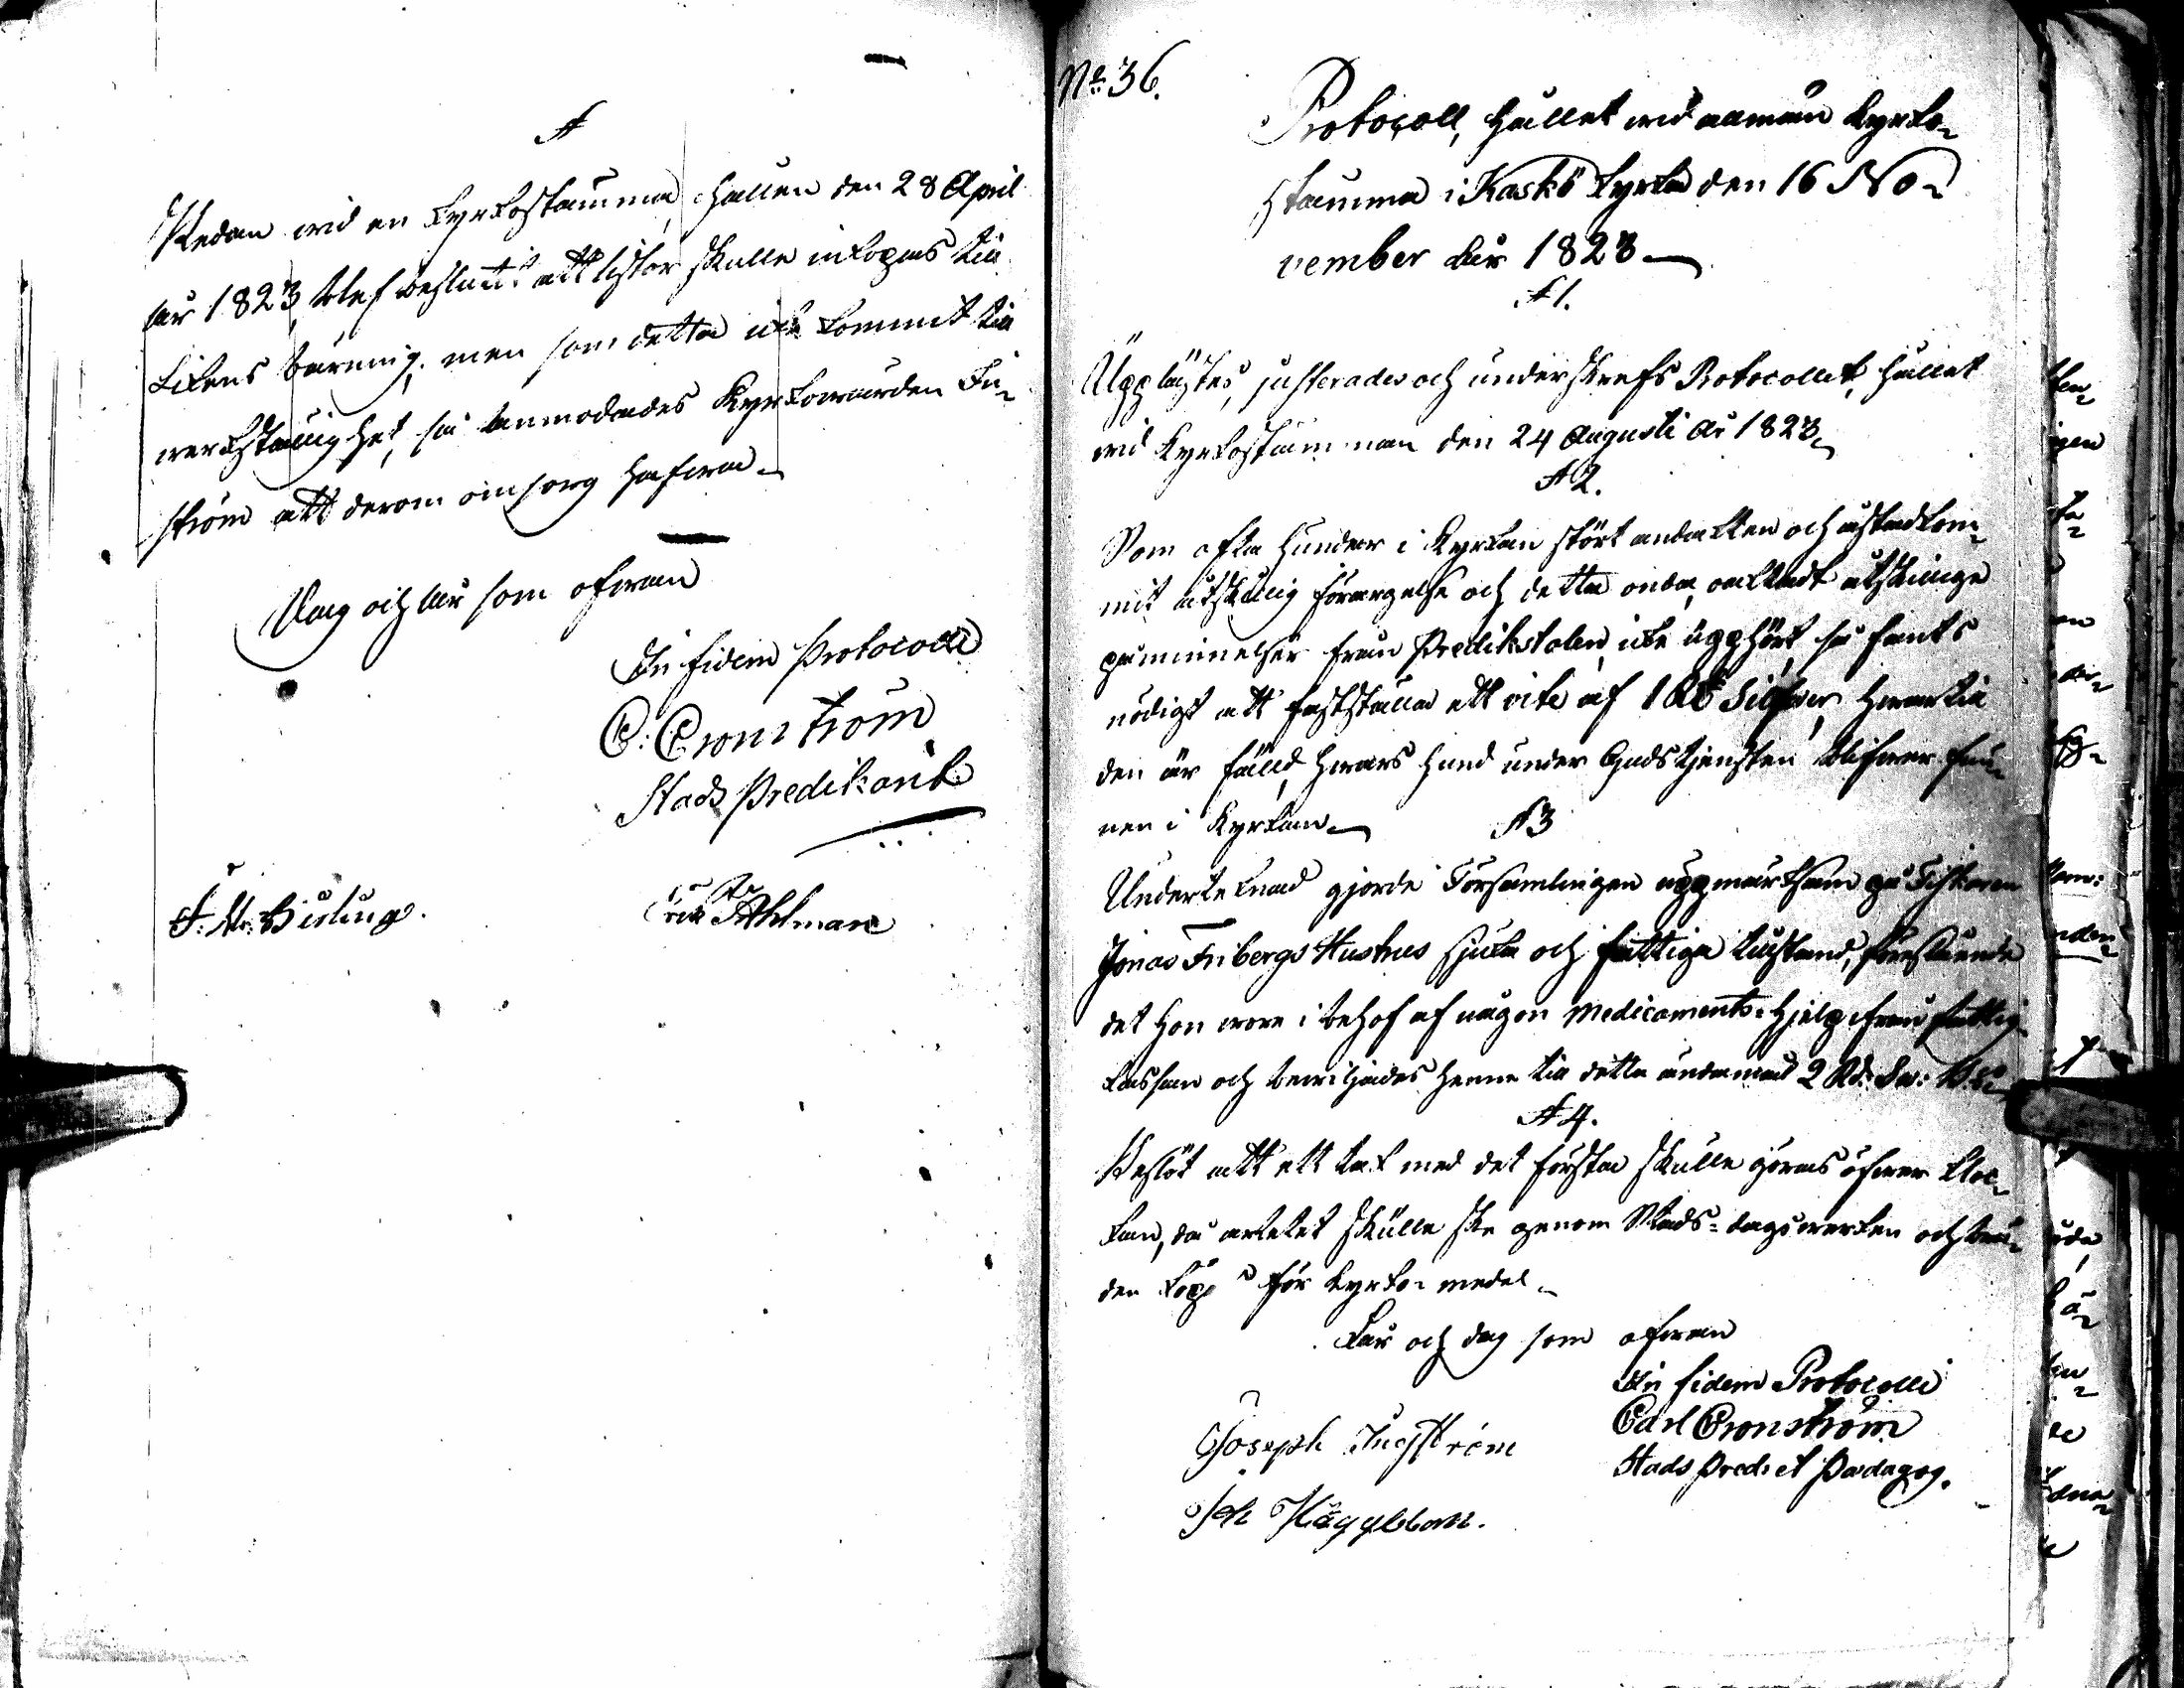 §
Redan vid en Kyrkostämma, hållen den 28 April
år 1823, blef beslutit att bistor skulle inköpas till
Likens bärning; men som detta icke kommit till
verkställighet, så anmodades Kyrkovärden En-
ström att derom omsorg hafva.
Dag och år som ofvan
In fidem Protocolli
C: Cronström
Stads Predikant
Erik Ahlman
No 36.
Protocoll, hållet vid allmän Kyrko-
stämma i Kaskö Kyrka den 16 No-
vember år 1823
§ 1.
Upplästes, justerades och underskrefs Protocollet, hållet
vid Kyrkostämman den 24 Augusti år 1823
§ 2.
Som ofta hundar i Kyrkan stört andakten och åstadkom-
mit åtskillig förargelse och detta onda, oaktadt åtskillige
påminnelser från Predikstolen, icke upphört, så fants
nödigt att fastställa ett vite af 1 Rub Silfver, hvartill
den är fälld, hvars hund under Gudstjensten blifver fun-
nen i Kyrkan
§ 3
Underteknad gjorde Församlingen uppmärksam på Fiskaren
Jonas Fribergs Hustrus sjuka och fattiga tillstånd, föreställande
det hon vore i behof af någon Medicaments-hjelp ifrån fattig-
kassan och beviljades henne till detta ändamål 2 Rd. Sv:
§ 4.
Beslöt att ett tak med det första skulle göras öfver kloc-
kan, då arbetet skulle ske genom Stads-dagsverken och brä-
den köpas för Kyrko-medel
År och dag som ofvan
In fidem Protocolli
Carl Cronström
Stads Pred. et Pædagog.
Joseph Engström
Joh Häggblom.